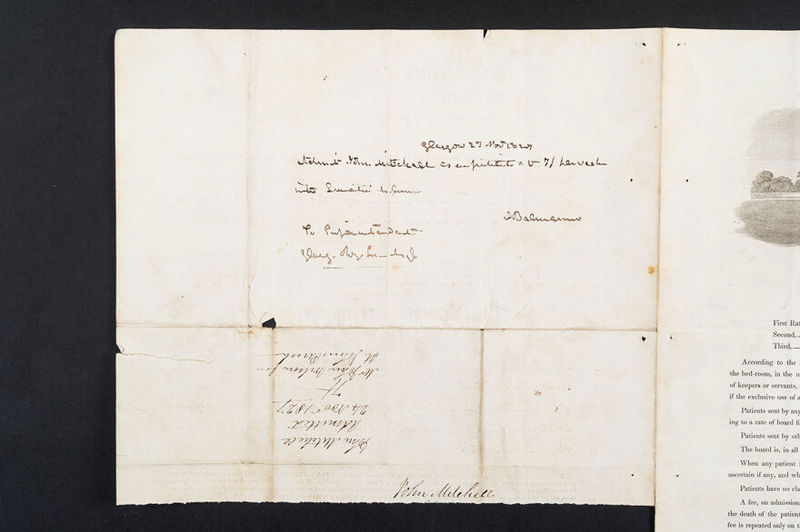 Glasgow 23 Novr 1827
Admit John Mitchell as patient at 7/ per week
into Lunatic Asylum
Balmanno
To Superintendant
Glasg. Roy. Lun. Asy.
John Mitchell
Admitted
24 Novr 1827
7/
John Mitchell
First Rat
Second,
Third,
According to the
the bed-room, in the n
of keepers or servants,
if the exclusive use of a
Patients sent by any
ing to a rate of board fi
Patients sent by oth
The board is, in all
When any patient i
ascertain if any, and wh
Patients have no cla
A fee, on admission
the death of the patient
fee is repeated only on